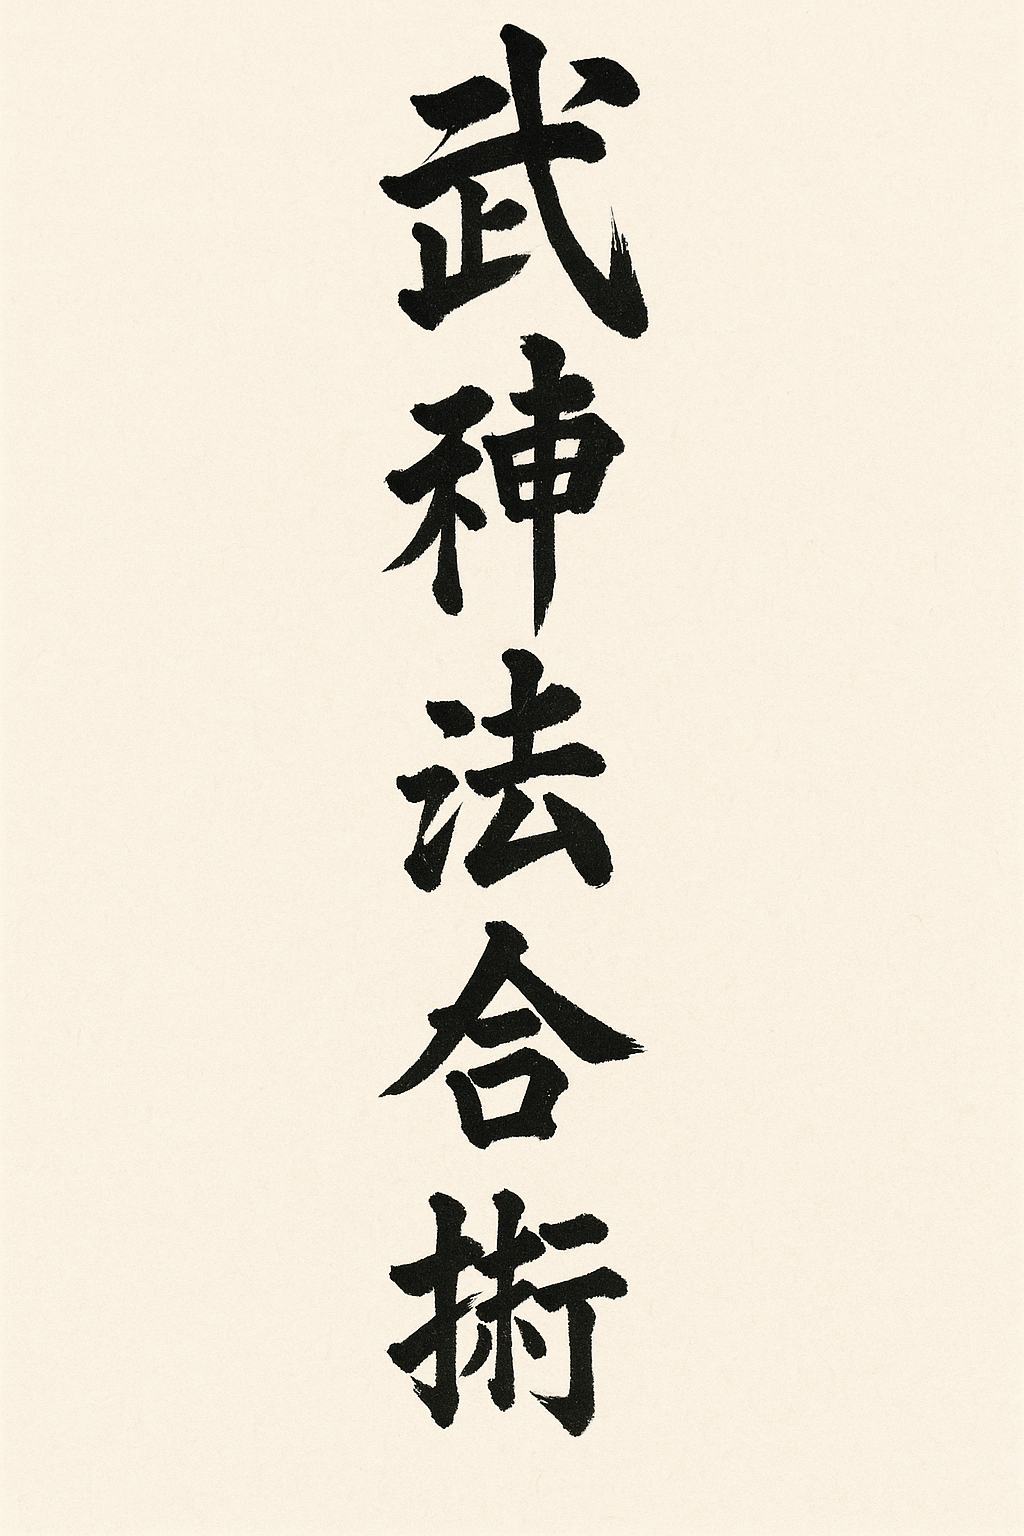 武神法合術